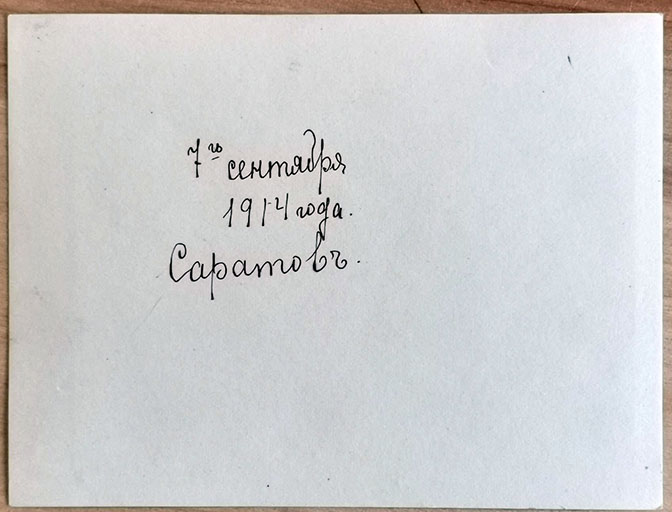 7го сентября
1914 года.
Саратовъ.